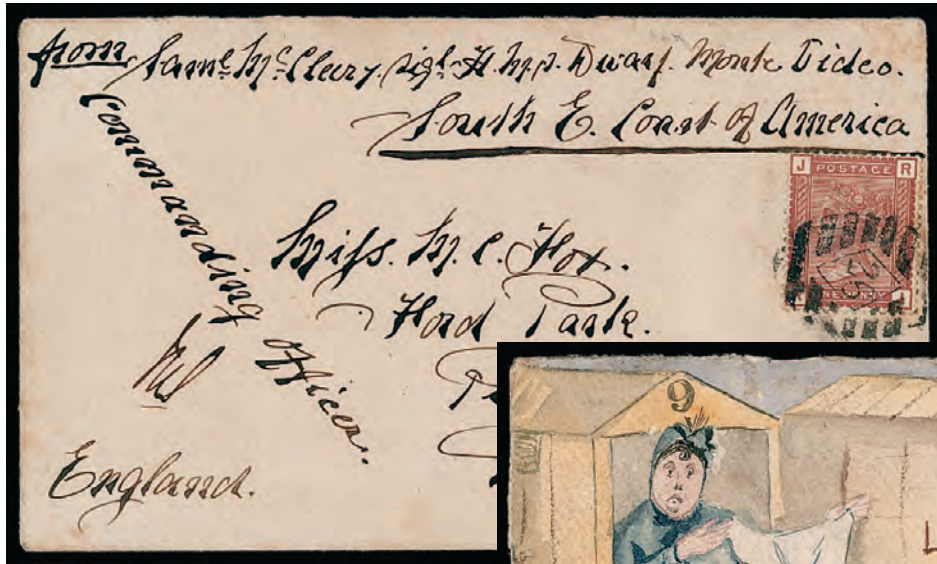 from Saml. McCleery. Sigl. H.M.S. Dwarf. Monte Video.
South E. Coast of America
Commanding Officer.
Miss. M. C. Fox.
Ford Park.
England.
J POSTAGE R
ONE PENNY
25
9
L